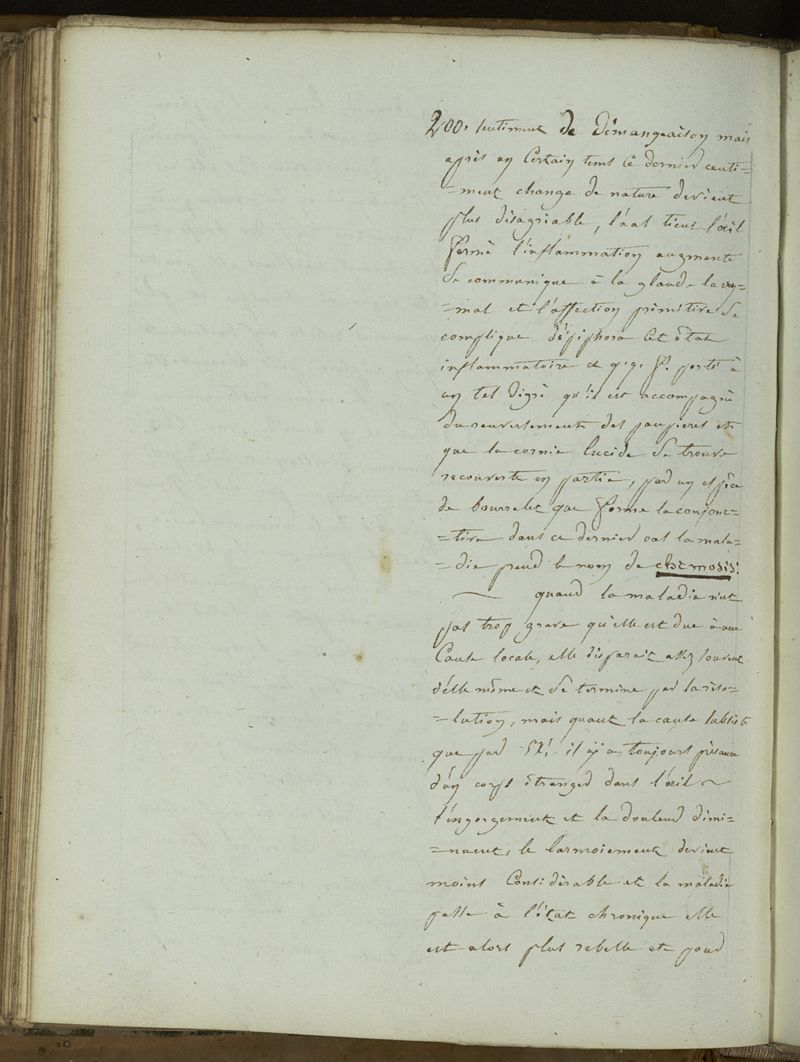 200. sentiment de démangeaison mais
après un Certain tems Ce dernier centi=
=ment change de nature devient
plus désagriable, l'aat tient l'œil
fermé l'inflammation augmente
Se communique à la glande lacry=
=mal et l'affection primitive Se
complique d'épiphora Cet état
inflammatoire et q.q. f. porté à
un tel digré qu'il est accompagné
du renversement des paupieres et
que la cornie lucide Se trouve
recouverte en partie, par un espèce
de bourrelet que forme la conjonc=
=tive dans ce dernier cas la mala=
=die prend le nom de chemosis.
quand la maladie n'est
pas trop grave qu'elle est due à une
Cause locale, elle disparait assez souvent
d'elle même et Se termine par la réso=
=lution, mais quant la cause subsiste
que par il y a toujours présence
d'un corps étranger dans l'œil ~
l'engorgement et la douleur dimi=
=nuent, le larmoiement devient
moins Considérable et la maladie
passe à l'état chronique elle
est alors plus rebelle et pour